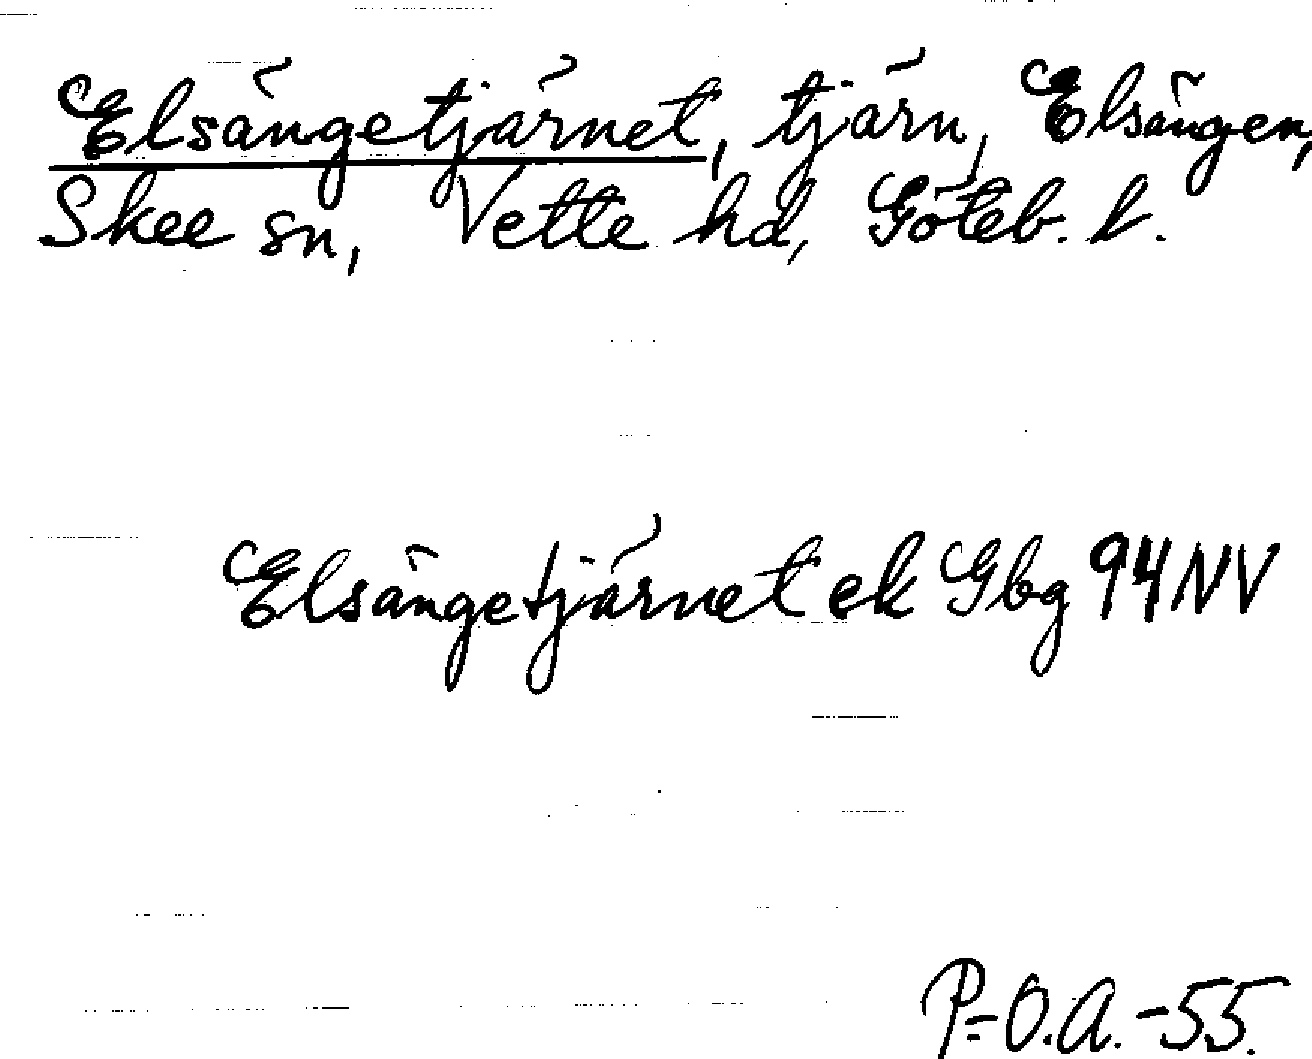 Elsängetjärnet, tjärn, Elsängen,
Skee sn, Vette hd, Göteb. l.
Elsängetjärnet ek Gbg 94 NV
P=O.A.-55.